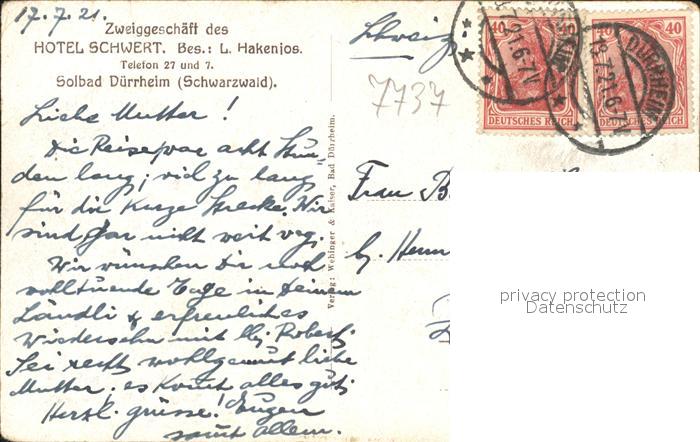 17.7.21.
Zweiggeschäft des
HOTEL SCHWERT. Bes.: L. Hakenjos.
Telefon 27 und 7.
Solbad Dürrheim (Schwarzwald).
Liebe Mutter!
Die Reise war acht Stun-
den lang; viel zu lang
für die kurze Strecke. Wir
sind gar nicht weit weg.
Wir wünschen Dir noch
wolltuende Tage in Deinem
Ländli & erfreuliches
Wiedersehn mit Robert.
Sei recht wohlgemut liebe
Mutter. es kommt alles gut;
Herzl. grüsse! Eugen
samt allem.
Verlag: Wehinger & Kaiser, Bad Dürrheim.
Schweiz
7737
40 40
DEUTSCHES REICH
40 40
DEUTSCHES REICH
DÜRRHEIM
18.7.21.6-7V
Frau B
b. Herrn
privacy protection
Datenschutz